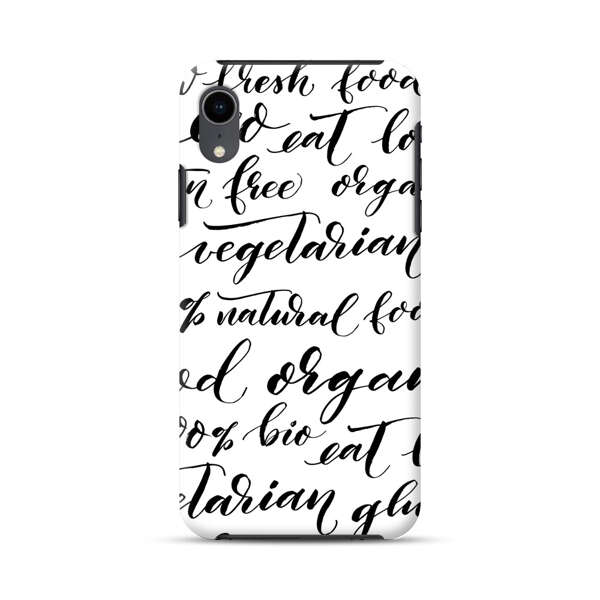 fresh food
eat lo
n free orga
vegetarian
% natural foo
od organ
00% bio eat l
etarian glu